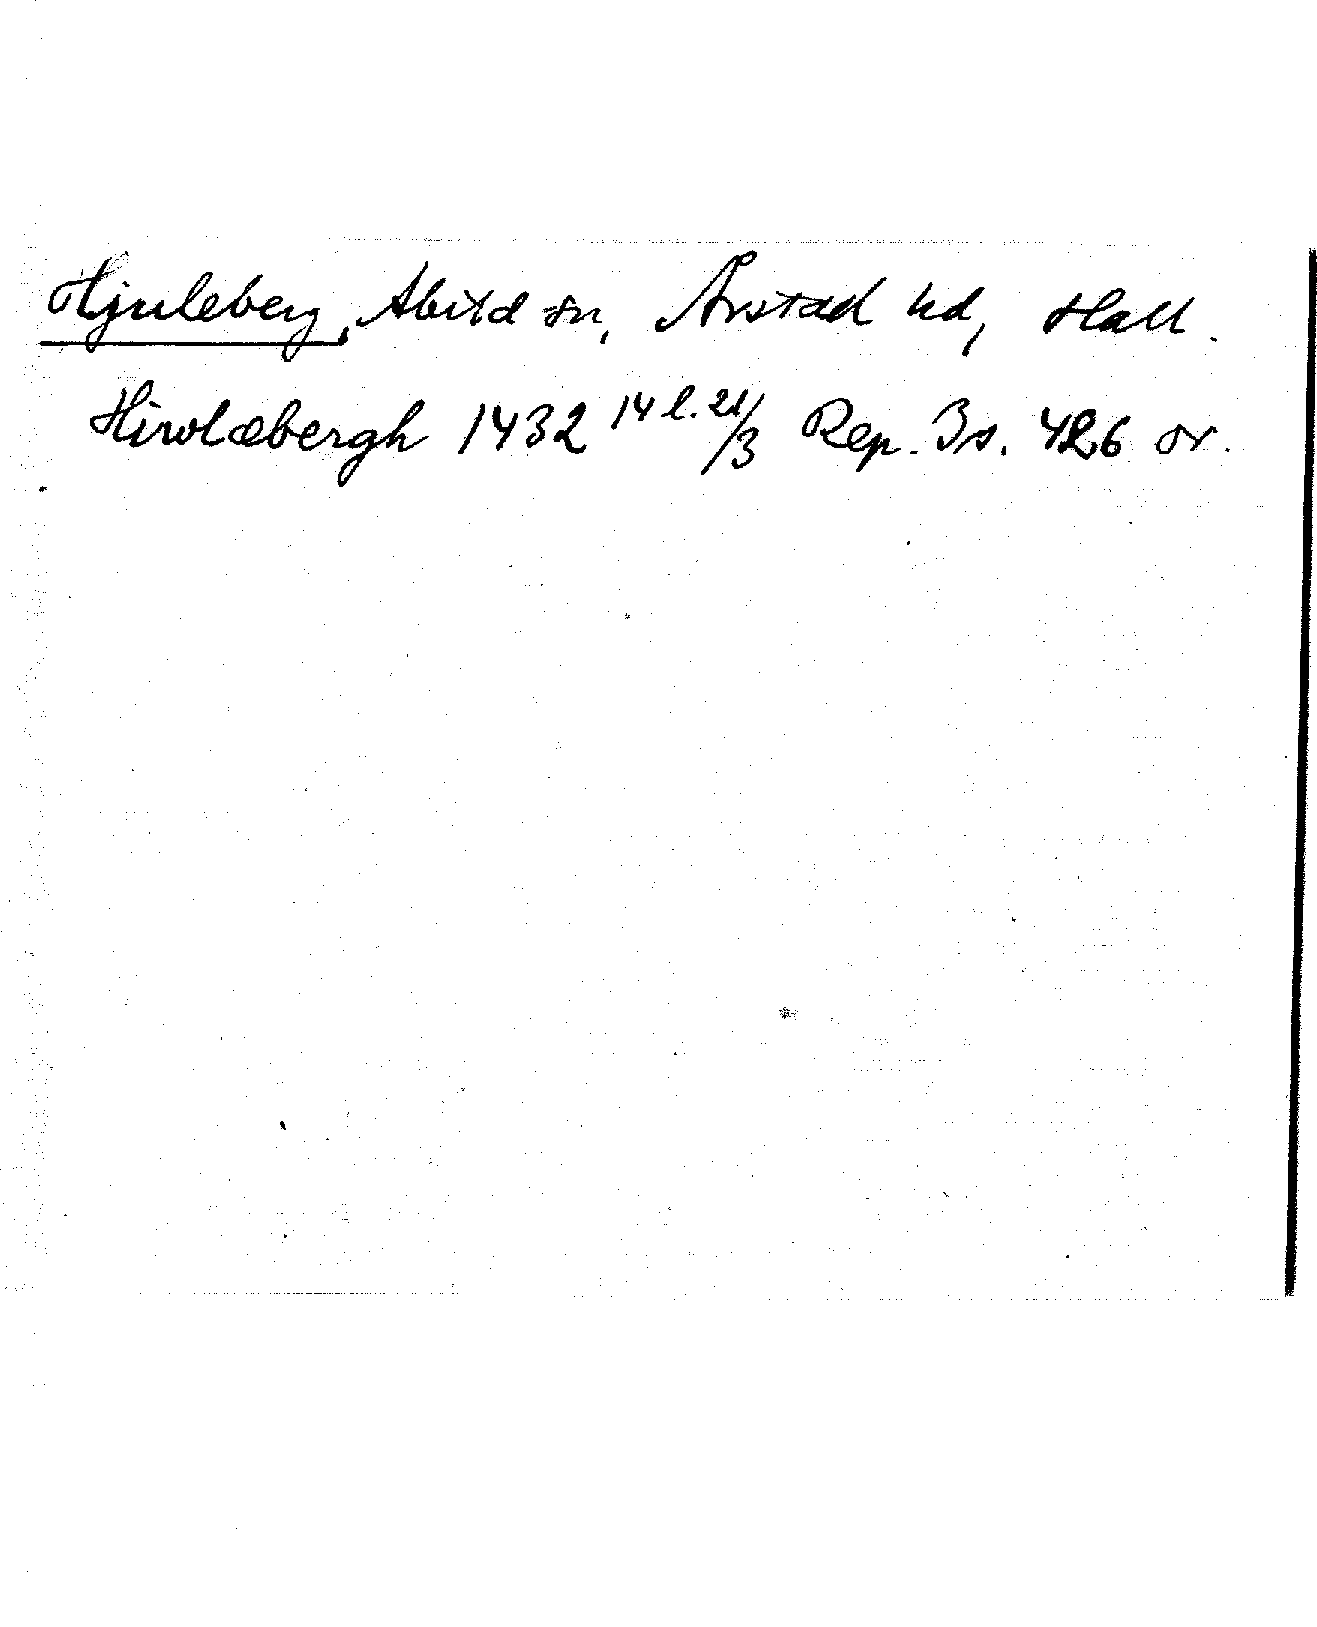 Hjuleberg, Abild sn, Årstad hd, Hall.
Hiwlæbergh 1432 14 l. 21/3 Rep. 3 s. 426 or.